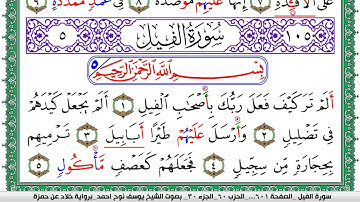 عَلَى الْأَفْـِٔدَةِ ٧ إِنَّهَا عَلَيْهُم مُّوصَدَةٌ ٨ فِي عُمُدٍ مُّمَدَّدَةٍ ٩
١٠٥ سُورَةُ الفِيل ٥
بِسْمِ اللَّهِ الرَّحْمَٰنِ الرَّحِيمِ
أَلَمْ تَرَ كَيْفَ فَعَلَ رَبُّكَ بِأَصْحَٰبِ الْفِيلِ ١ أَلَمْ يَجْعَلْ كَيْدَهُمْ
فِي تَضْلِيلٍ ٢ وَأَرْسَلَ عَلَيْهُمْ طَيْرًا أَبَابِيلَ ٣ تَرْمِيهِم
بِحِجَارَةٍ مِّن سِجِّيلٍ ٤ فَجَعَلَهُمْ كَعَصْفٍ مَّأْكُولٍ ٥
سورة الفيل الصفحة ٦٠١ ... الحزب ٦٠ الجزء ٣٠ بصوت الشيخ يوسف نوح احمد برواية خلاد عن حمزة